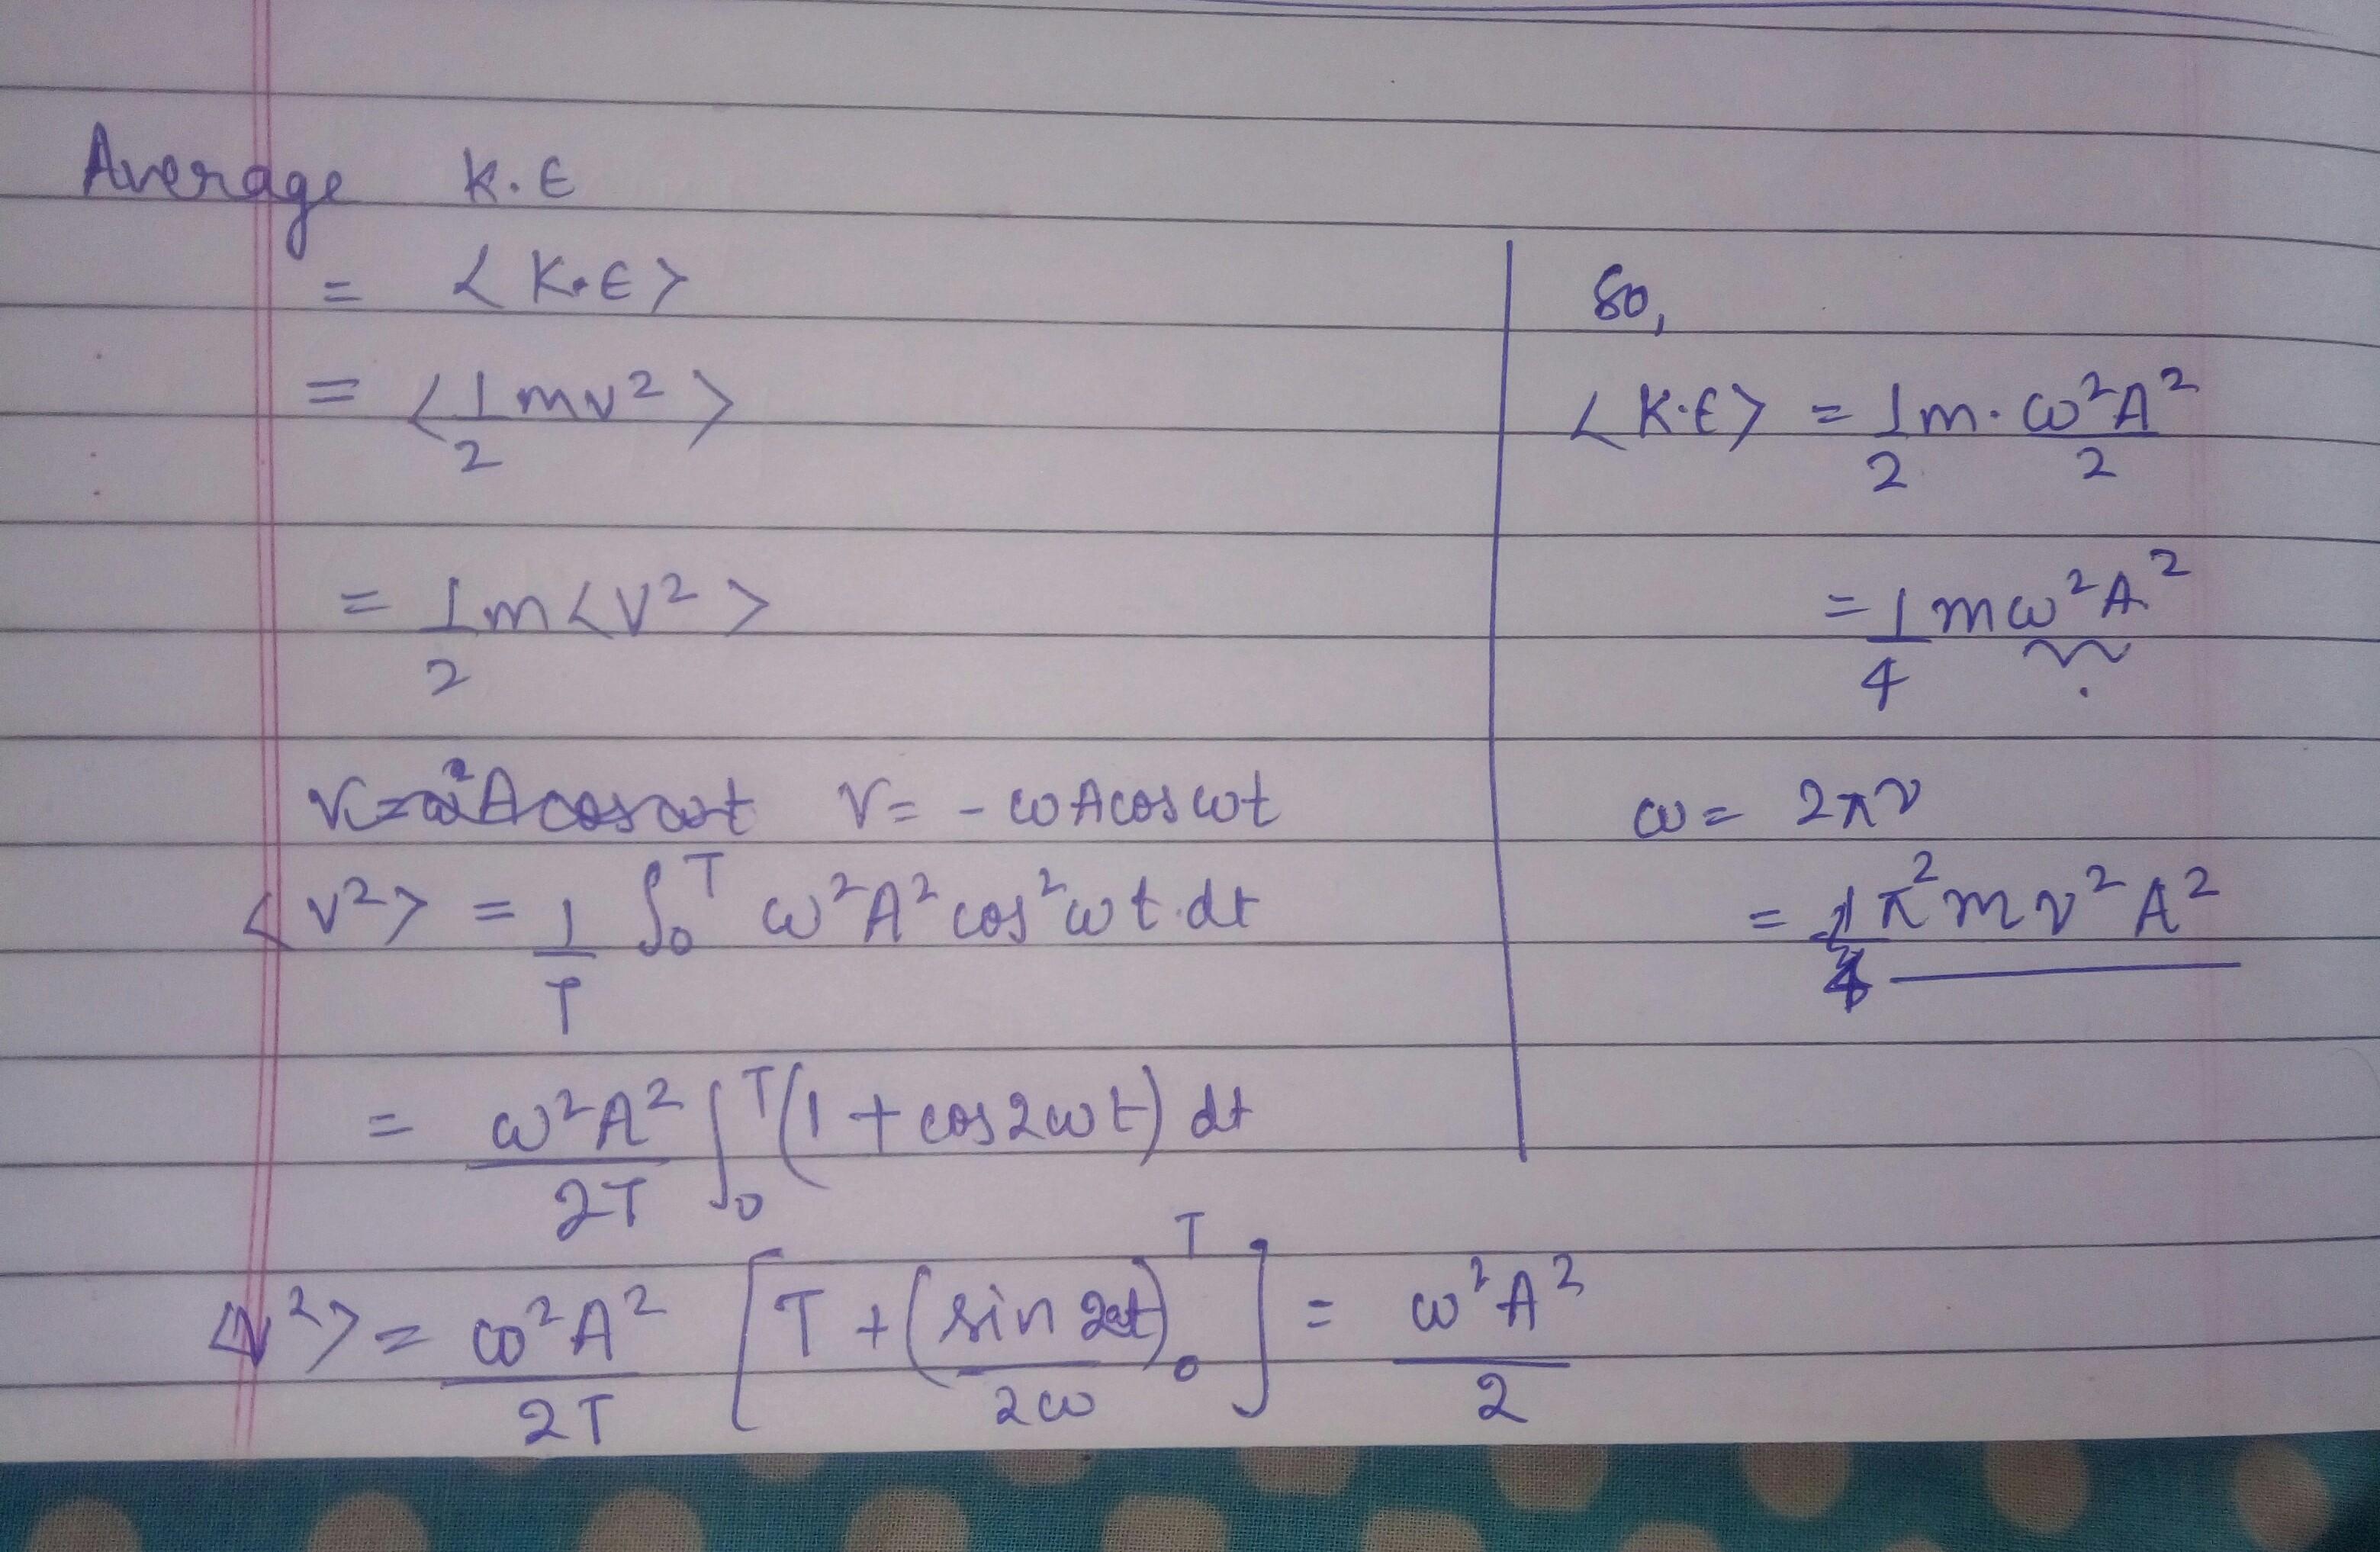 Average K.E
= <K.E>
= <1/2 mv²>
= 1/2 m<v²>
v=ω²Acosωt v= -ωAcosωt
<v²> = 1/T ∫₀ᵀ ω²A²cos²ωt.dt
= ω²A²/2T ∫₀ᵀ(1+cos2ωt) dt
<v²> = ω²A²/2T [T+(sin 2ωt/2ω)₀ᵀ] = ω²A²/2
So,
<K.E> = 1/2 m. ω²A²/2
= 1/4 mω²A²
ω= 2πν
= π²mν²A²